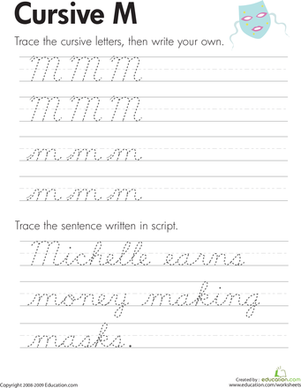 Cursive M
Trace the cursive letters, then write your own.
M M M
M M M
m m m
m m m
Trace the sentence written in script.
Michelle earns
money making
masks.
Copyright 2008-2009 Education.com
Created by :
education.com
www.education.com/worksheets